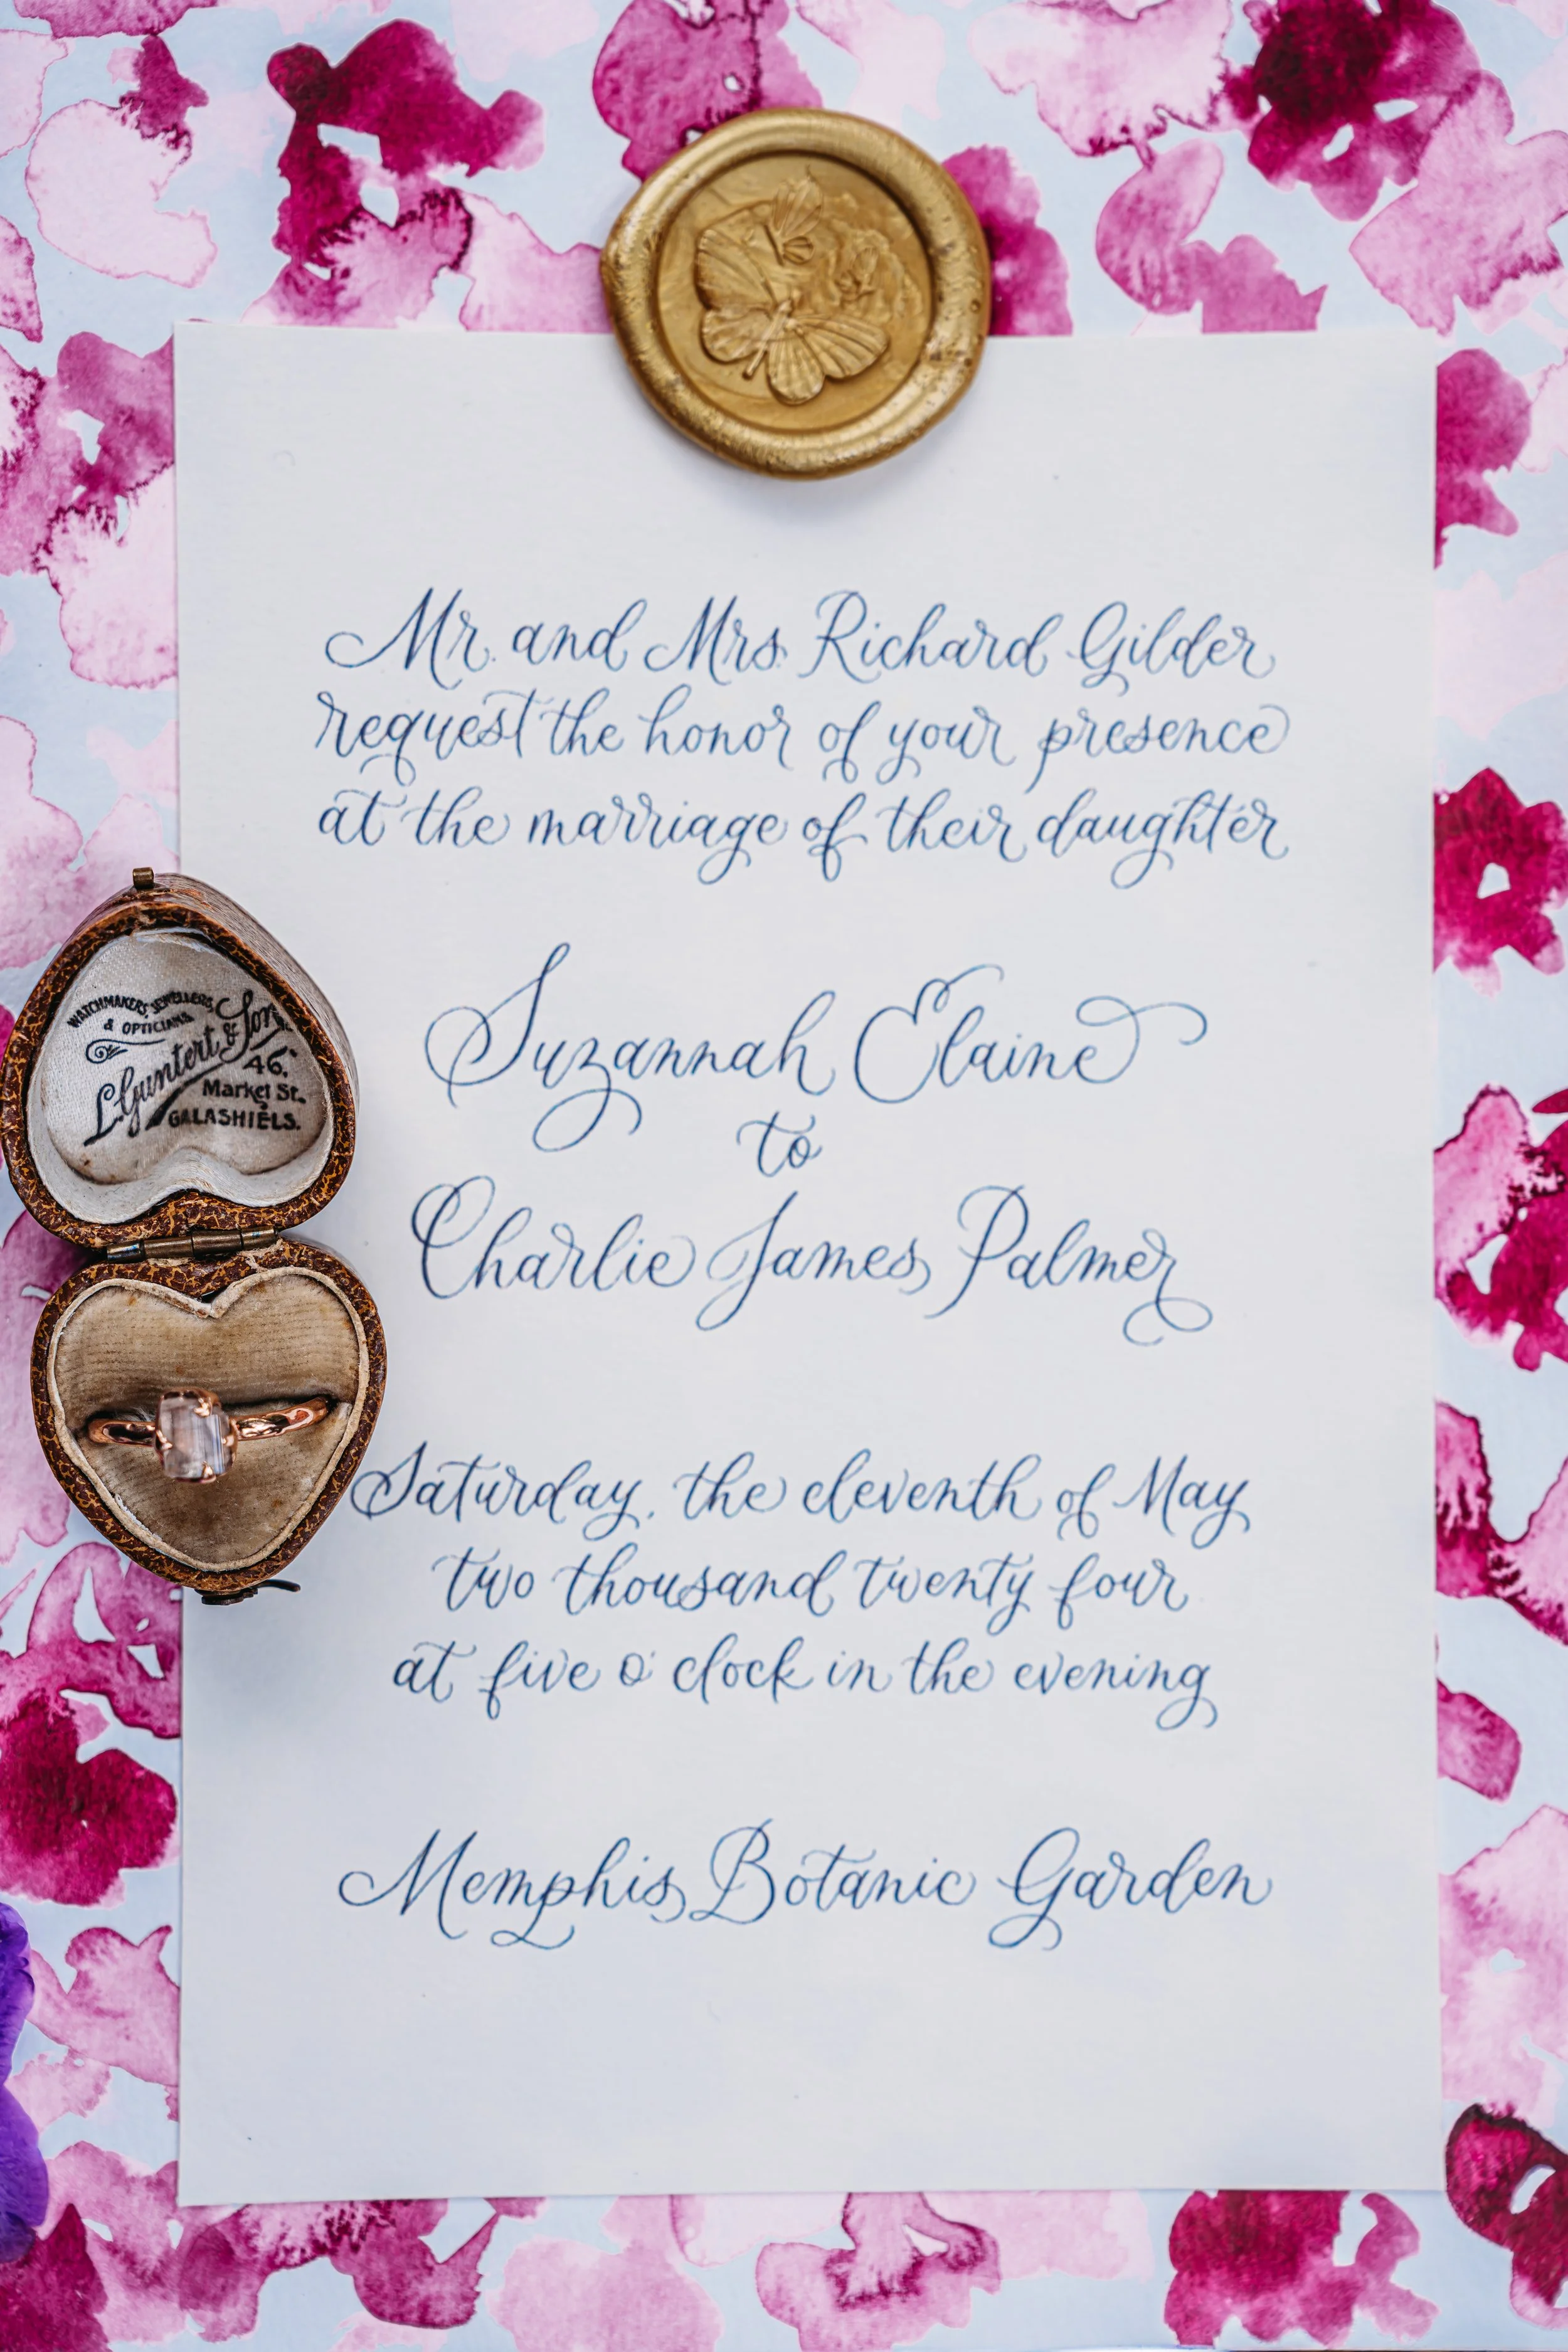 Mr. and Mrs. Richard Gilder
request the honor of your presence
at the marriage of their daughter
Suzannah Elaine
to
Charlie James Palmer
Saturday, the eleventh of May
two thousand twenty four
at five o'clock in the evening
Memphis Botanic Garden
WATCHMAKERS, JEWELLERS,
& OPTICIANS
L. Guntert & Son,
46,
Market St.
GALASHIELS.